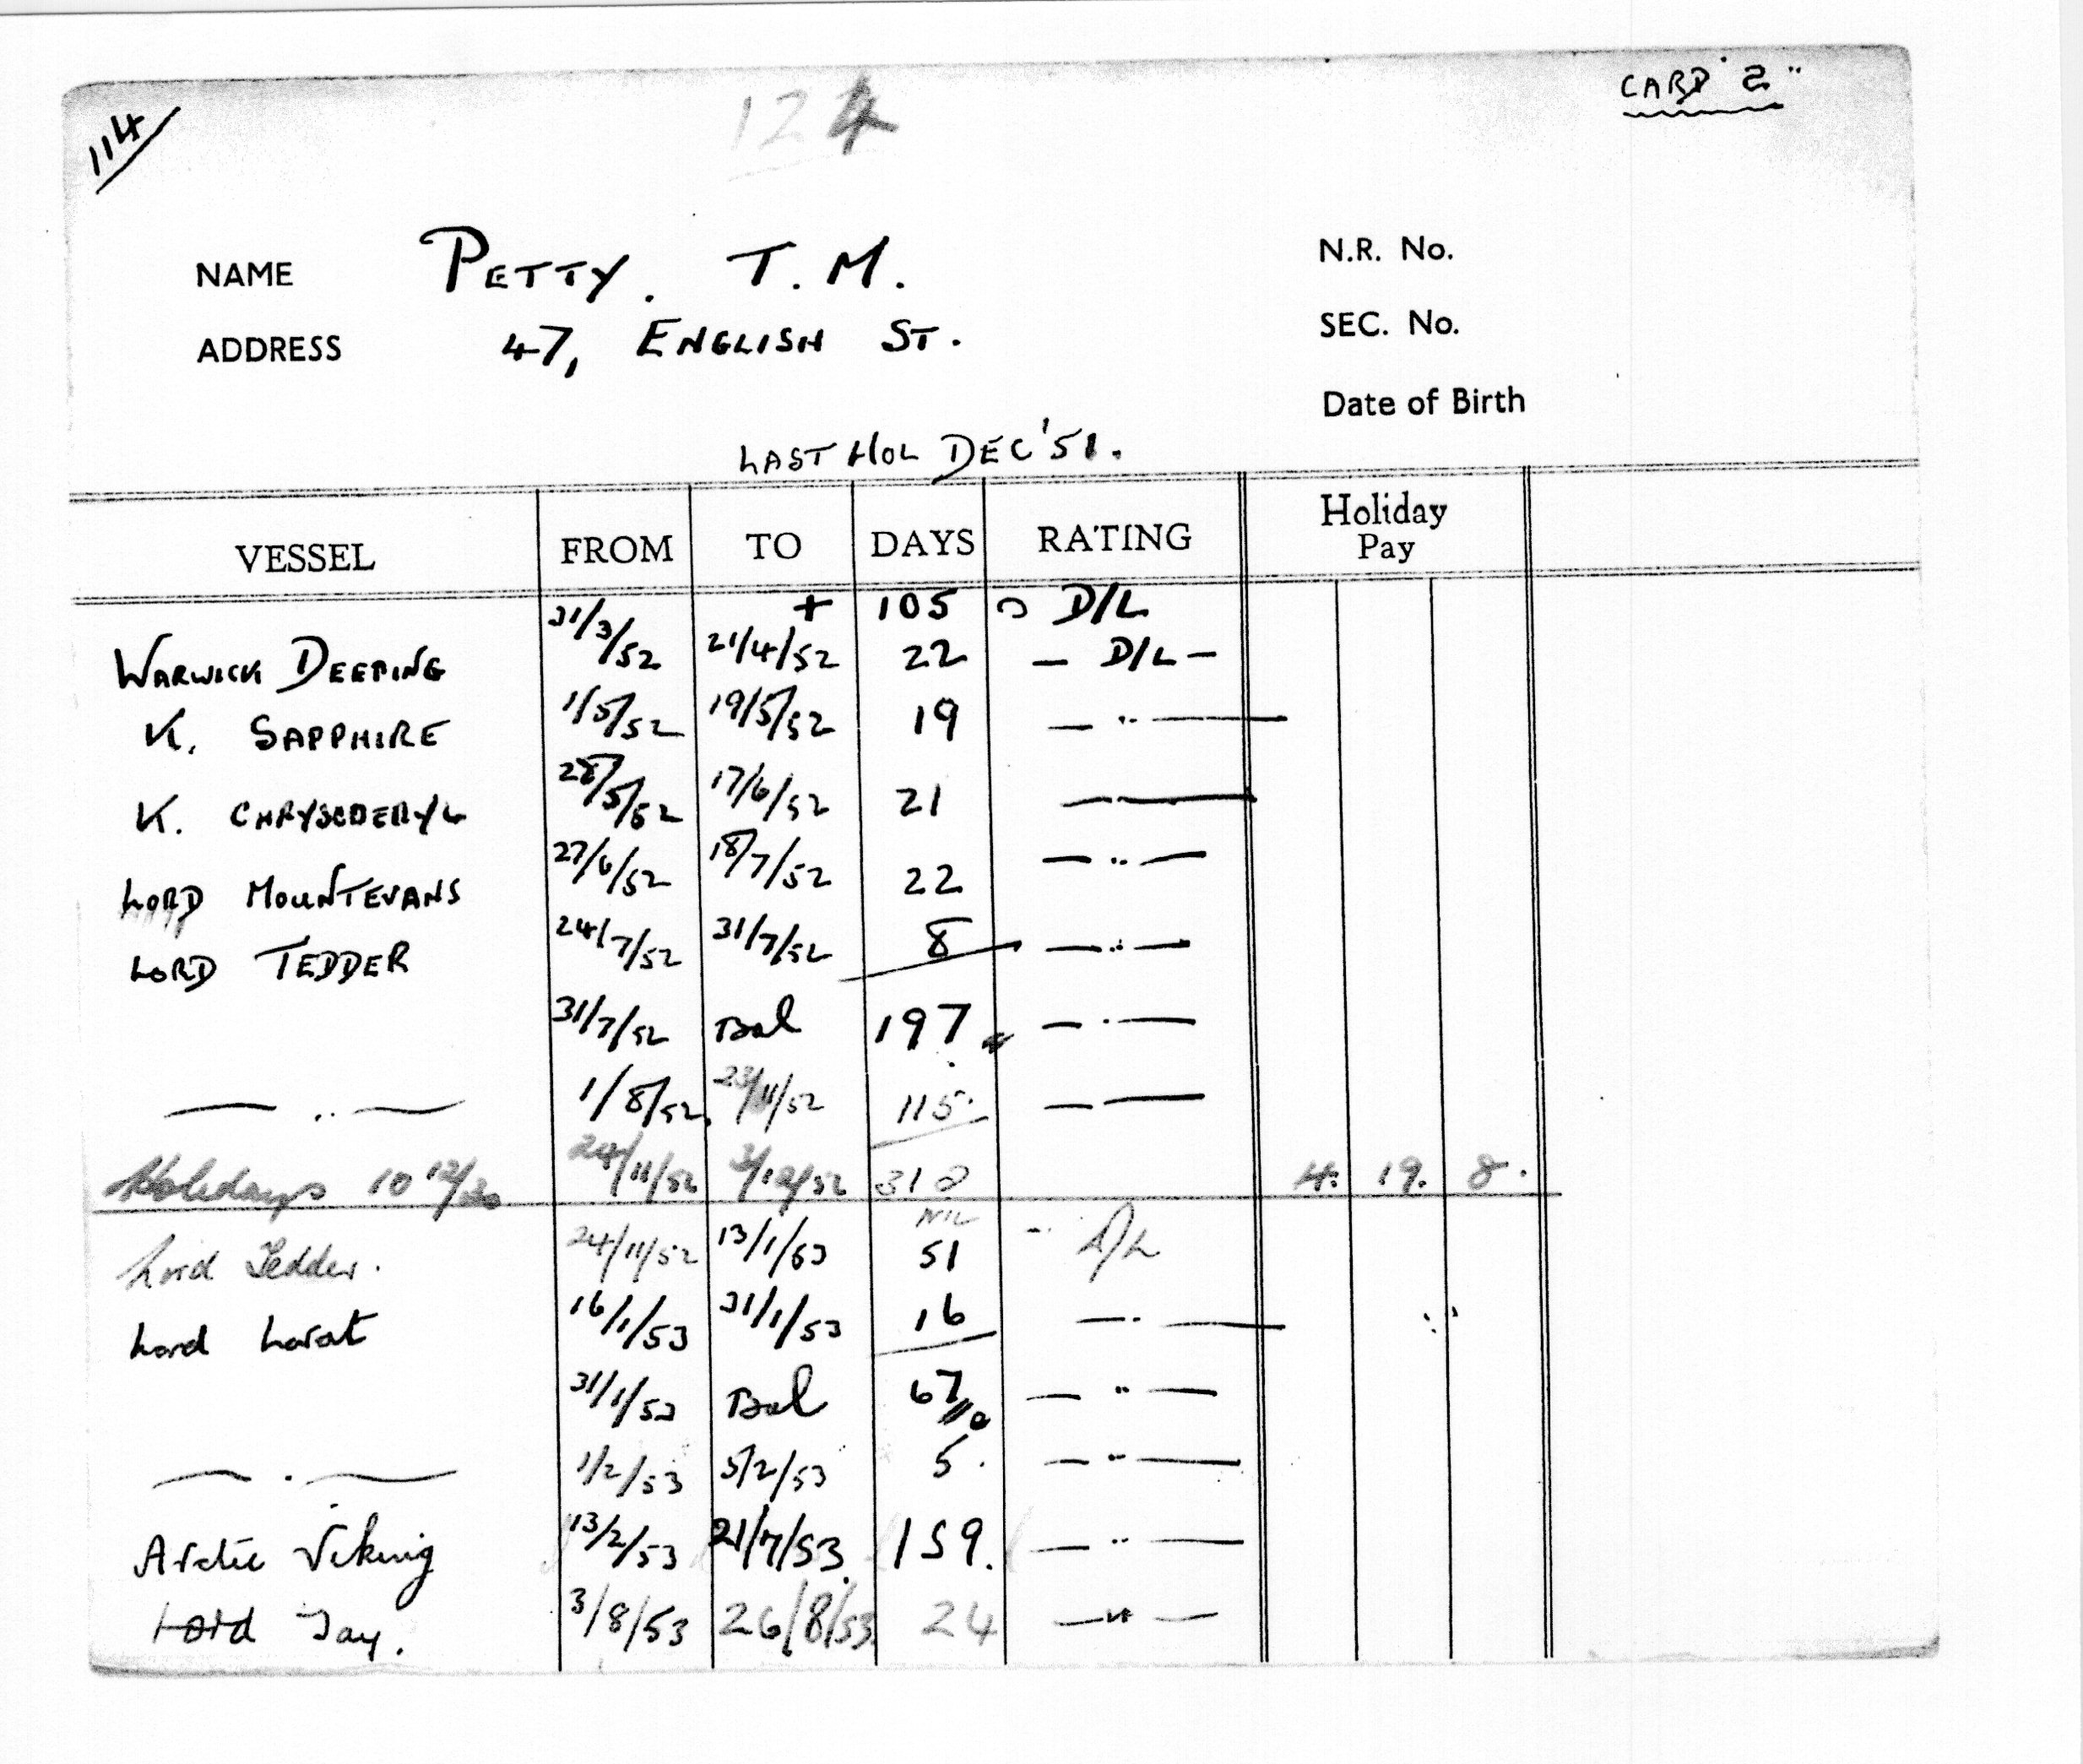 CARD "2"
114
124
NAME PETTY. T.M.
N.R. No.
ADDRESS 47, ENGLISH ST.
SEC. No.
Date of Birth
LAST HOL DEC '51.
VESSEL FROM TO DAYS RATING Holiday Pay
+ 105 D/L
WARWICK DEEPING 31/3/52 21/4/52 22 — D/L —
K. SAPPHIRE 1/5/52 19/5/52 19 — " —
K. CHRYSOBERYL 28/5/52 17/6/52 21 — " —
LORD MOUNTEVANS 27/6/52 18/7/52 22 — " —
LORD TEDDER 24/7/52 31/7/52 8 — " —
31/7/52 Bal 197 — " —
— " — 1/8/52 23/11/52 115 — " —
Holidays 10 12/30 24/11/52 3/12/52 312 4. 19. 8.
NIL
Lord Tedder. 24/11/52 13/1/53 51 D/L
Lord Lovat 16/1/53 31/1/53 16 — " —
31/1/53 Bal 67 — " —
— " — 1/2/53 5/2/53 5. — " —
Arctic Viking 13/2/53 21/7/53. 159. — " —
Lord Tay. 3/8/53 26/8/53. 24 — " —